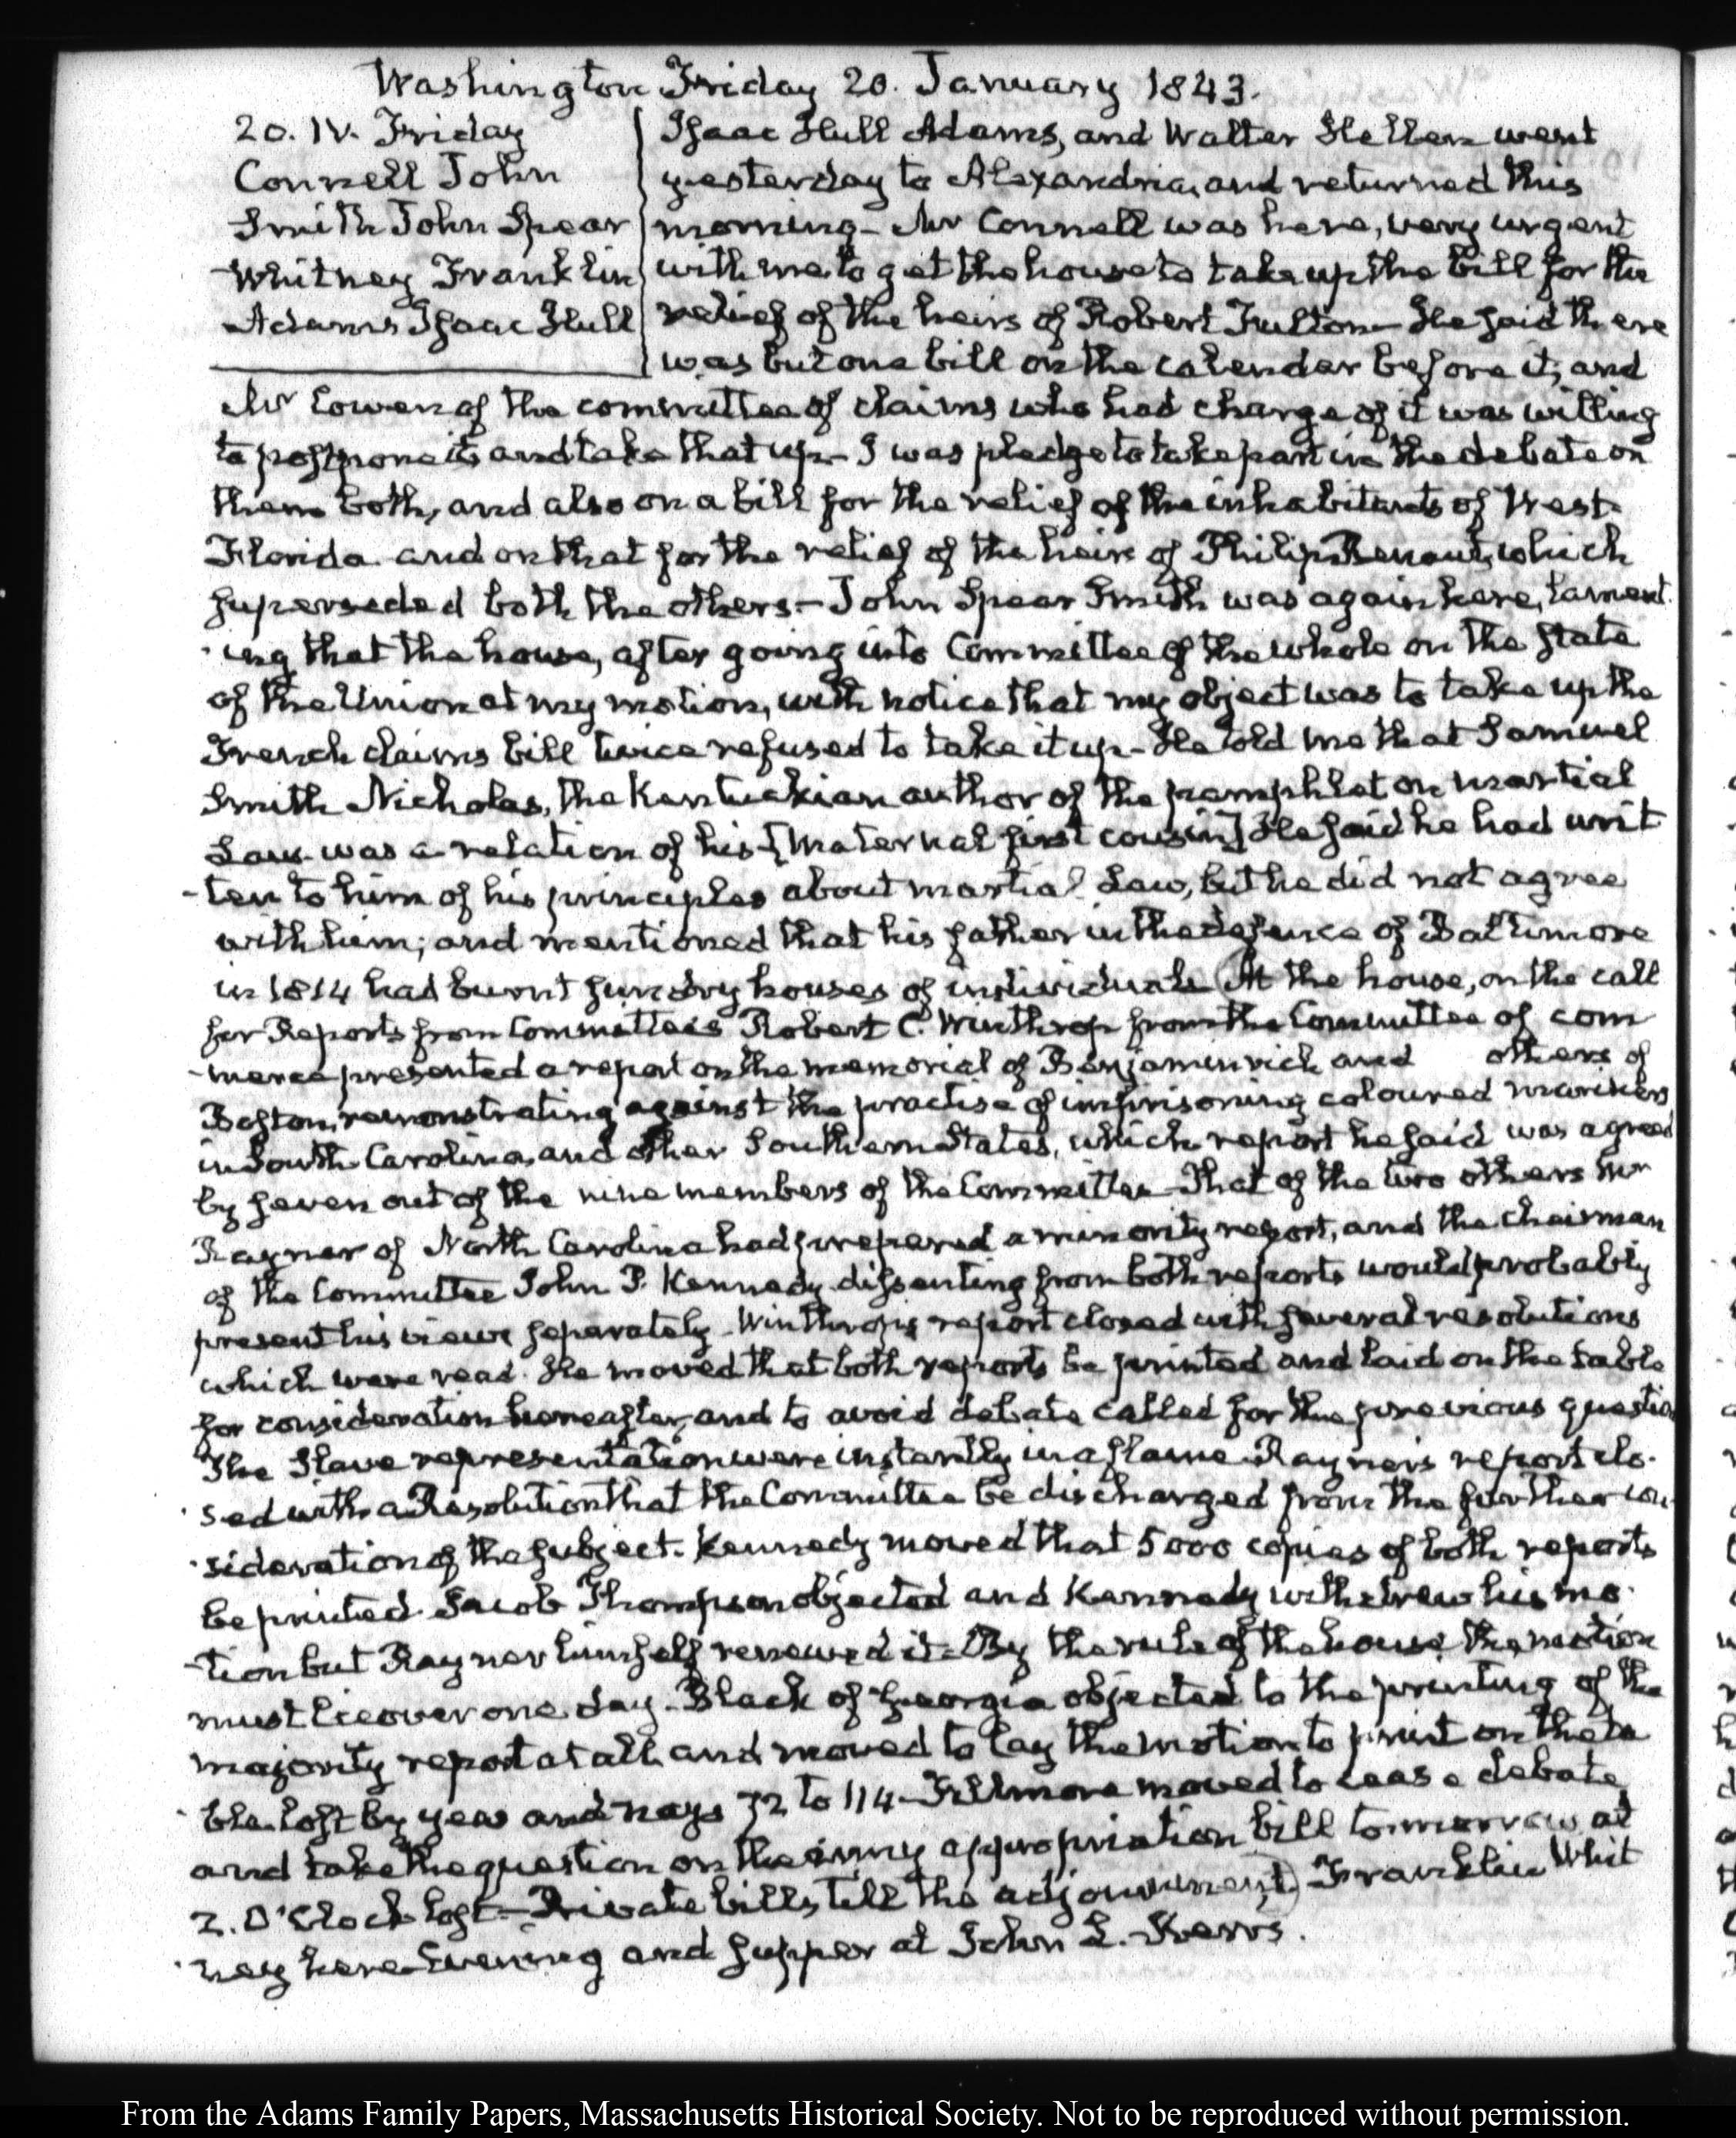 Washington Friday 20. January 1843.
20. IV. Friday
Connell John
Smith John Spear
Whitney Franklin
Adams Isaac Hull
Isaac Hull Adams, and Walter Hellen went
yesterday to Alexandria, and returned this
morning— Mr Connell was here, very urgent
with me to get the house to take up the bill for the
relief of the heirs of Robert Fulton— He said there
was but one bill on the calendar before it, and
Mr Cowen of the committee of claims who had charge of it was willing
to postpone it and take that up— I was pledge to take part in the debate on
them both, and also on a bill for the relief of the inhabitants of West
Florida and on that for the relief of the heirs of Philip Renaut, which
superseded both the others— John Spear Smith was again here, lament
ing that the house, after going into Committee of the whole on the State
of the Union at my motion, with notice that my object was to take up the
French claims bill twice refused to take it up— He told me that Samuel
Smith Nicholas, the Kentuckian author of the pamphlet on martial
Law was a relation of his [maternal first cousin] He said he had writ
-ten to him of his principles about martial Law, but he did not agree
with him; and mentioned that his father in the defence of Baltimore
in 1814 had burnt sundry houses of individuals (At the house, on the call
for Reports from Committees Robert C. Winthrop from the Committee of com
-merce presented a report on the memorial of Benjamin rich and others of
Boston, remonstrating against the practise of imprisoning coloured mariners
in South Carolina, and other Southern States, which report he said was agreed
by seven out of the nine members of the Committee— That of the two others Mr
Rayner of North Carolina had prepared a minority report, and the chairman
of the Committee John P. Kennedy dissenting from both reports would probably
present his views separately— Winthrop's report closed with several resolutions
which were read. He moved that both reports be printed and laid on the table
for consideration hereafter, and to avoid debate called for the previous question
The Slave representation were instantly in a flame— Rayner's report clo-
sed with a Resolution that the Committee be discharged from the further con-
sideration of the subject. Kennedy moved that 5000 copies of both reports
be printed. Jacob Thompson objected and Kennedy withdrew his mo-
-tion but Rayner himself renewed it— By the rule of the house the motion
must lie over one day— Black of Georgia objected to the printing of the
majority report at all and moved to lay the motion to print on the ta
ble. lost by yeas and nays 72 to 114— Fillmore moved to cease debate
and take the question on the army appropriation bill tomorrow at
2. O'Clock lost— Private bills, till the adjournment) Franklin Whit
ney here— Evening and supper at John L. Kerrs.
From the Adams Family Papers, Massachusetts Historical Society. Not to be reproduced without permission.